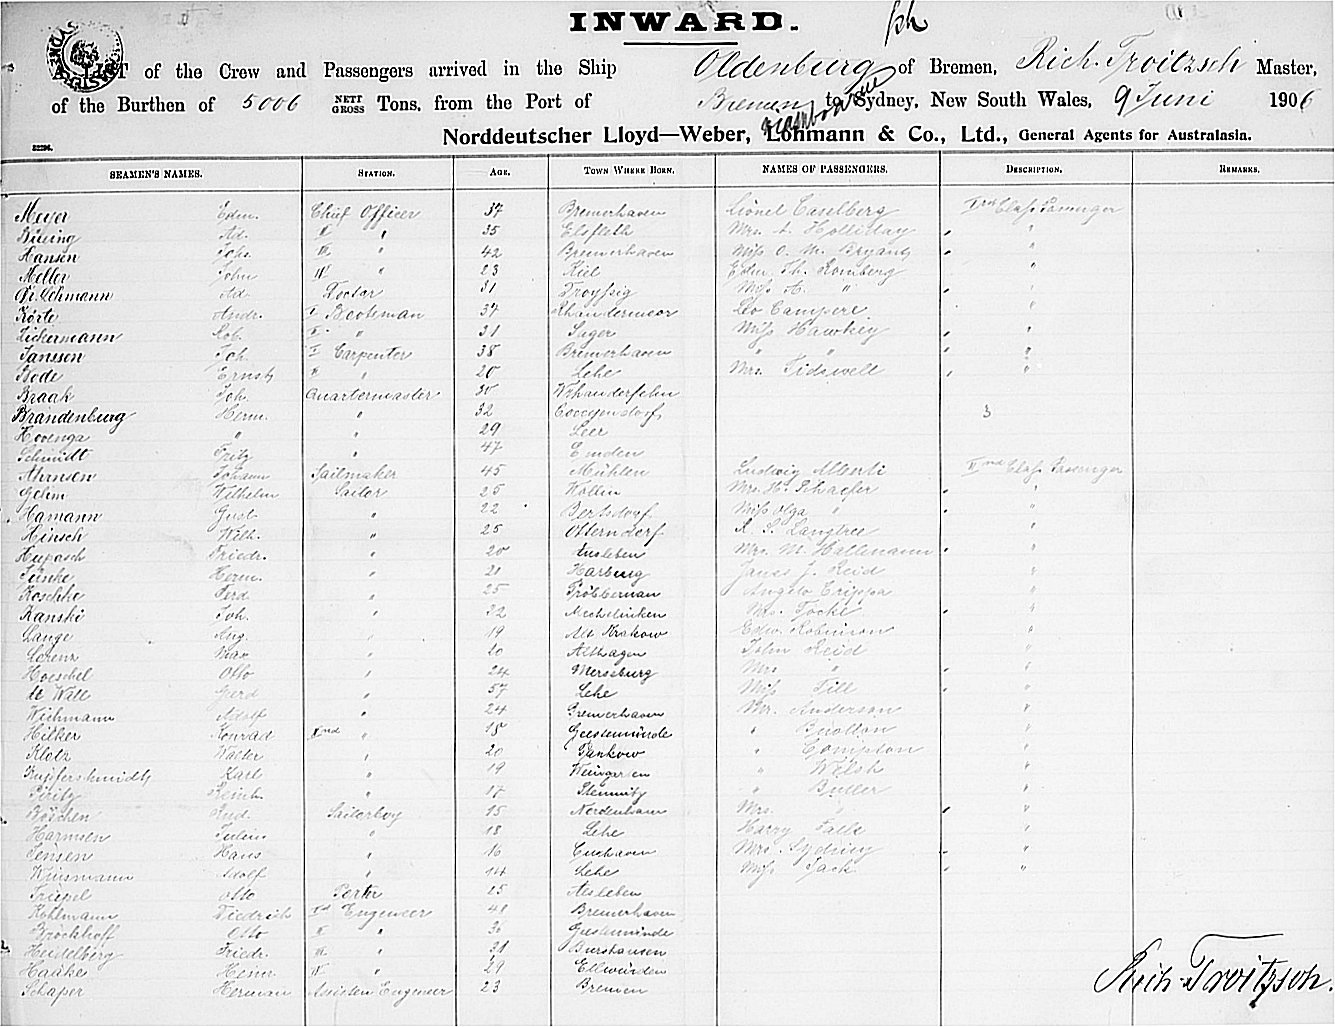 INWARD.
of the Crew and Passengers arrived in the Ship Oldenburg of Bremen, Rich. Troitzsch Master,
of the Burthen of 5006 NETT GROSS Tons, from the Port of Bremen to Sydney, New South Wales, 9 Juni 1906
Norddeutscher Lloyd—Weber, Lohmann & Co., Ltd., General Agents for Australasia.
SEAMEN'S NAMES. STATION. AGE. TOWN WHERE BORN. NAMES OF PASSENGERS. DESCRIPTION. REMARKS.
Meyer Edm. Chief Officer 37 Bremerhaven Lionel Caselberg Ist Class Passenger
Büsing Ad. II " 35 Elsfleth Mrs. A. Holliday "
Hansen Joh. III " 42 Bremerhaven Miss O. M. Bryant "
Meller John IV " 23 Kiel Edm. Th. Romberg "
Dr. Lehmann Ad. Doctor 31 Troyssig Miss A. " "
Körte Andr. I Bootsman 37 Rhaudermoor Leo Campere "
Zickermann Rob. II " 31 Sager Miss Hawkey "
Janssen Joh. I Carpenter 38 Bremerhaven " " "
Bode Ernst II " 20 Lehe Mrs. Tidswell "
Braak Joh. Quartermaster 30
Brandenburg Herm. " 32 3
Hovenga " " 29 Leer
Schmidt Fritz " 47 Emden
Ahrnsen Johann Sailmaker 45 Mühlen Ludwig Alberti IInd Class Passenger
Gehm Wilhelm Sailor 25 Wollin Mrs. H. Schaefer "
Hamann Gust. " 22 Bertsdorf Miss Olga " "
Hinsch Wilh. " 25 Otterndorf R. S. Langtree "
Hupasch Friedr. " 20 Eusleben Mrs. M. Hallemann "
Junke Herm. " 21 Harburg James J. Reid "
Koschke Ferd. " 25 Angelo Crippa "
Kanski Joh. " 32 Mechelinken Mrs. Tocke "
Lange Aug. " 19 Alt Krakow Edw. Robinson "
Lorenz Max " 20 Althagen John Reid "
Hoeschel Otto " 24 Merseburg Mrs " "
de Wall Gerd " 57 Lehe Miss Till "
Wichmann Adolf " 24 Bremerhaven Mr. Anderson "
Hilker Konrad IInd " 18 Geestemünde " Buolton "
Klotz Walter " 20 Pankow " Compton "
Kupferschmidt Karl " 19 Weingarten " Welsh "
Piritz Reinh. " 17 Stemnitz " Buller "
Böschen Rud. Sailorboy 15 Nordenham Mrs. " "
Harmsen Julius " 18 Lehe Harry Falls "
Jensen Hans " 16 Cuxhaven Mrs. Sydney "
Wursmann Adolf " 14 Lehe Miss Jack "
Triepel Otto Porter 25 Aesleben
Kohlmann Diedrich Ist Engineer 41 Bremerhaven
Brockhoff Otto II " 30 Geestemünde
Heidelberg Friedr. III " 31 Burshausen
Haake Heinr. IV " 29 Ellwürden
Schaper Herman Assisten Engineer 23 Bremen
Rich. Troitzsch.